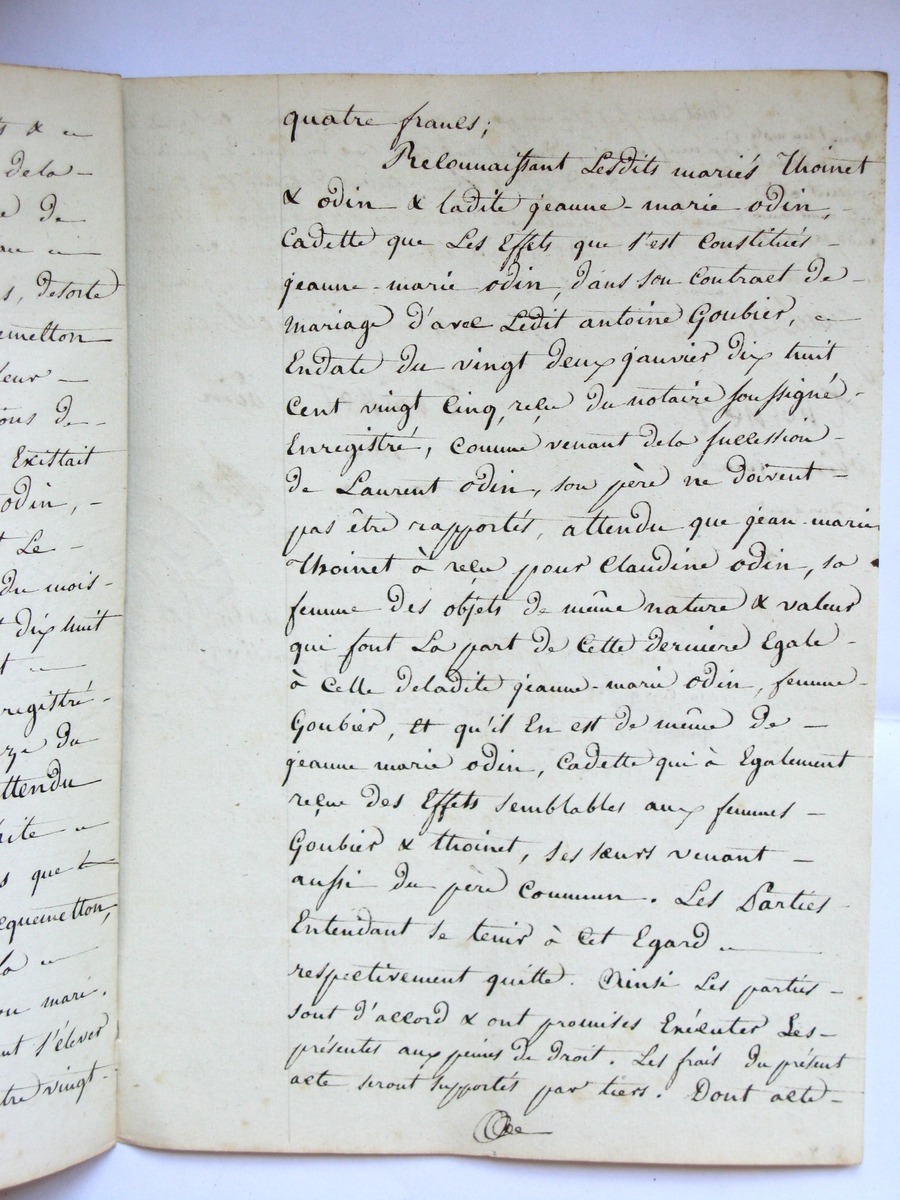 ts &
dela -
e de
au
s, desorte
emelton
leur -
ons de -
Existait
odin, -
t Le -
du mois -
t dix huit
t -
registré -
ze du
ttendu
ite
s que
equemetton,
la
on mari.
nt s'élever
tre vingt -
quatre francs;
Reconnaissant Lesdits mariés Thoinet
& odin & ladite jeanne-marie odin, -
Cadette que Les Effets que s'est Constitués -
jeanne-marie odin, dans son Contract de -
mariage d'avec Ledit antoine Goubier, -
Endate du vingt deux janvier dix huit
Cent vingt Cinq, reçu du notaire soussigné -
Enregistré, Comme venant dela succession -
de Laurent odin, son père ne doivent -
pas être rapportés, attendu que jean-marie
Thoinet à reçu pour Claudine odin, sa
femme des objets de même nature & valeur
qui font La part de Cette derniere Egale -
à Celle deladite jeanne-marie odin, femme -
Goubier, et qu'il En est de même de -
jeanne marie odin, Cadette qui à Egalement
reçue des Effets semblables aux femmes -
Goubier & thoinet, ses sœurs venant -
aussi du père Commun. Les Parties -
Entendant se tenir à Cet Egard -
respectivement quitte. Ainsi Les parties -
sont d'accord & ont promises Exécuter Les -
présentes aux peines de droit. Les frais du présent
acte seront supportés par tiers. Dont acte -